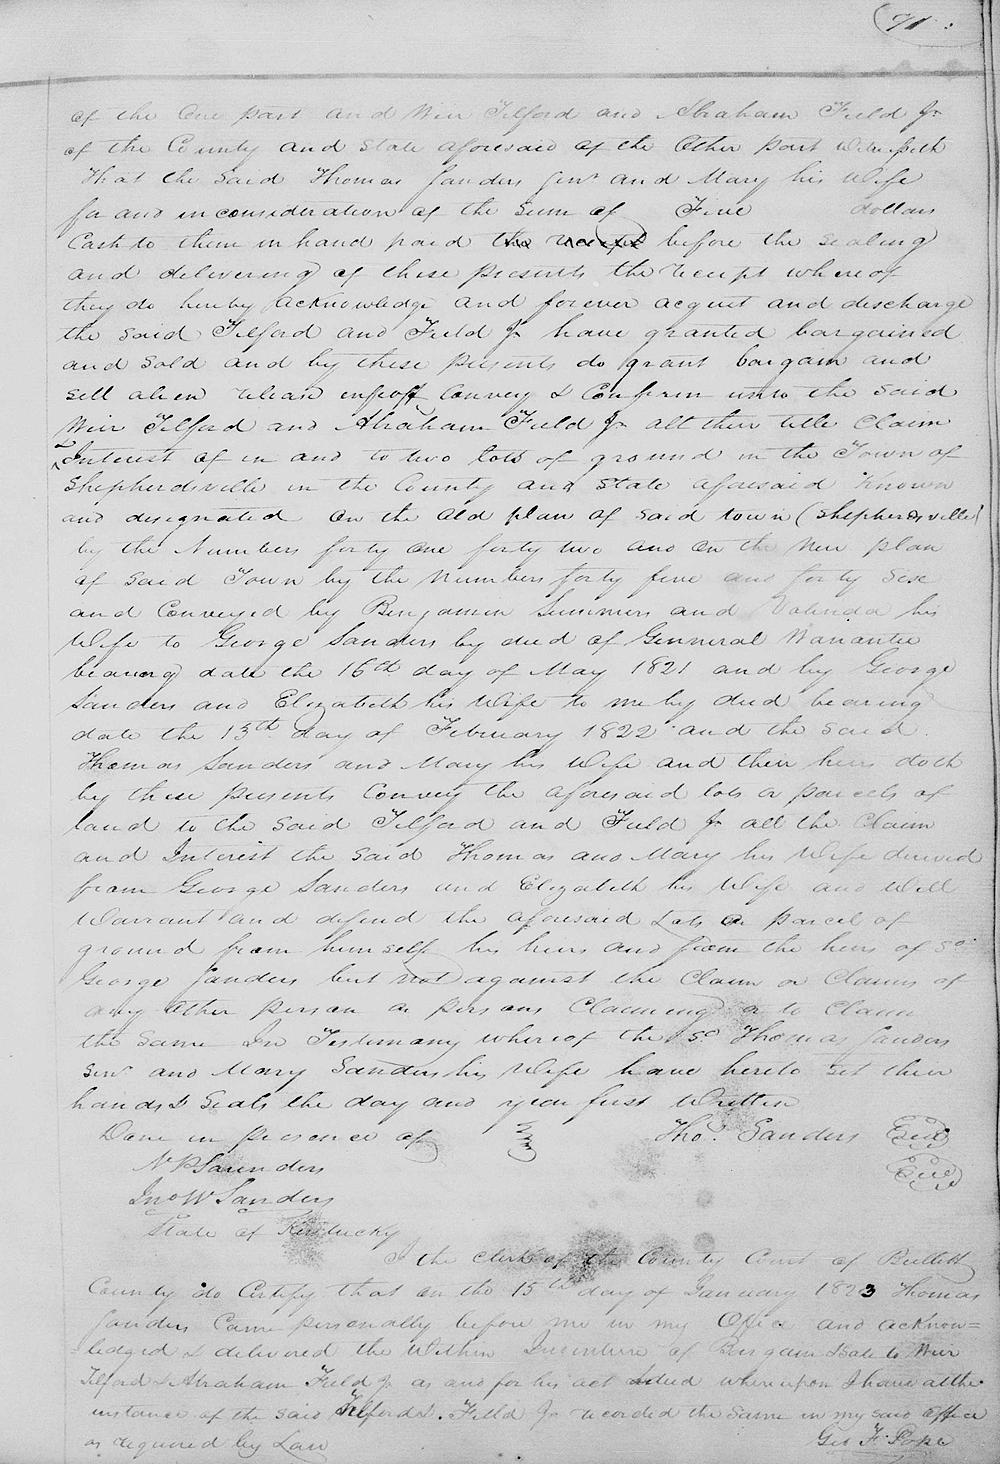 91
of the One part and Wier Tilford and Abraham Field Jr
of the County and State aforesaid of the Other part Witnesseth
That the Said Thomas Sanders Senr and Mary his Wife
for and in consideration of the Sum of Five dollars
Cash to them in hand paid the receipt before the Sealing
and delivering of these presents the receipt whereof
they do hereby acknowledge and forever acquit and discharge
the said Tilford and Field Jr have granted bargained
and Sold and by these presents do grant bargain and
Sell alien release enfeoff Convey & Confirm unto the Said
Wier Tilford and Abraham Field Jr all their title Claim
& Interest of in and to two lots of ground in the Town of
Shepherdsville in the County and State aforesaid Known
and designated on the old plan of Said town (Shepherdsville)
by the Numbers forty one forty two and on the New plan
of Said Town by the Numbers forty five and forty Six
and Conveyed by Benjamin Summers and Valinda his
Wife to George Sanders by deed of General Warrantee
bearing date the 16th day of May 1821 and by George
Sanders and Elizabeth his Wife to me by deed bearing
date the 13th day of February 1822 and the Said
Thomas Sanders and Mary his Wife and their heirs doth
by these presents Convey the aforesaid lots or parcels of
land to the Said Tilford and Field Jr all the Claim
and Interest the Said Thomas and Mary his Wife derived
from George Sanders and Elizabeth his Wife and Will
Warrant and defend the aforesaid Lots or parcel of
ground from himself his heirs and from the heirs of Sd
George Sanders but not against the Claim or Claims of
any other person or persons Claiming or to Claim
the Same In Testimony whereof the Sd Thomas Sanders
Senr and Mary Sanders his Wife have hereto Set their
hands & Seals the day and year first Written
Done in presence of Tho. Sanders Seal
N P Saunders Seal
Jno W Sanders
State of Kentucky
I the Clerk of the County Court of Bullitt
County do Certify that on the 15th day of January 1823 Thomas
Sanders Came personally before me in my Office and acknow=
=ledged & delivered the Within Indenture of Bargain & Sale to Wier
Tilford & Abraham Field Jr as and for his act & deed whereupon I have at the
instance of the Said Tilford & Field Jr recorded the Same in my said office
as required by Law Geo F. Pope